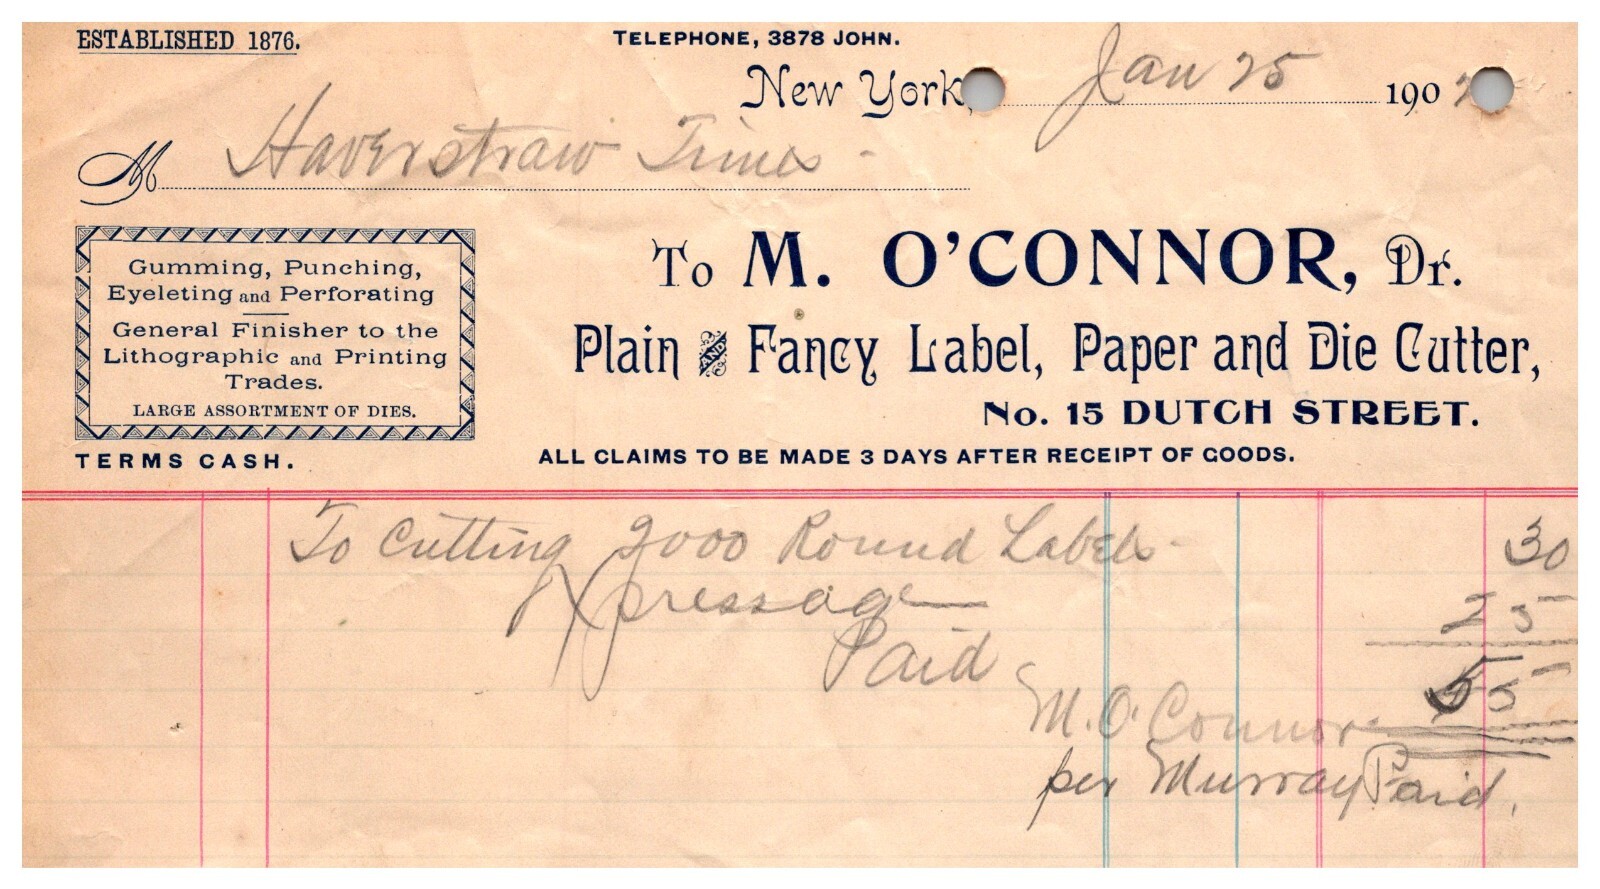 ESTABLISHED 1876.
TELEPHONE, 3878 JOHN.
New York, Jan 25 190
M Haverstraw Times -
Gumming, Punching,
Eyeleting and Perforating
General Finisher to the
Lithographic and Printing
Trades.
LARGE ASSORTMENT OF DIES.
TERMS CASH.
To M. O'CONNOR, Dr.
Plain AND Fancy Label, Paper and Die Cutter,
No. 15 DUTCH STREET.
ALL CLAIMS TO BE MADE 3 DAYS AFTER RECEIPT OF GOODS.
To Cutting 2000 Round Labels - 30
Xpressage 25
Paid
55
M. O'Connor
per Murray Paid.